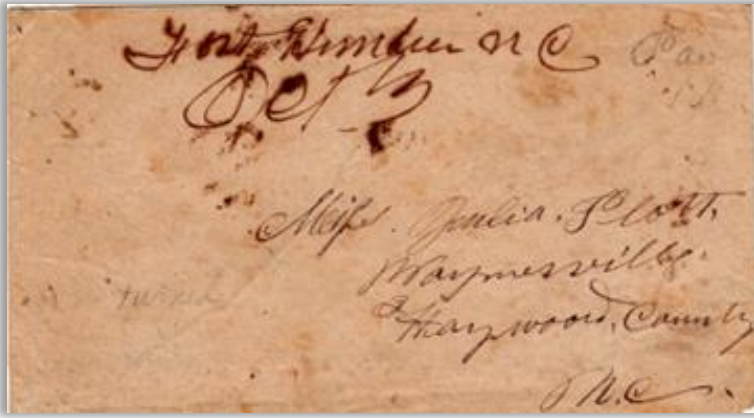 Fort Hembree N C
Oct 3
Miss. Julia. Plott,
Waynesville.
Haywood, County
N.C
turned